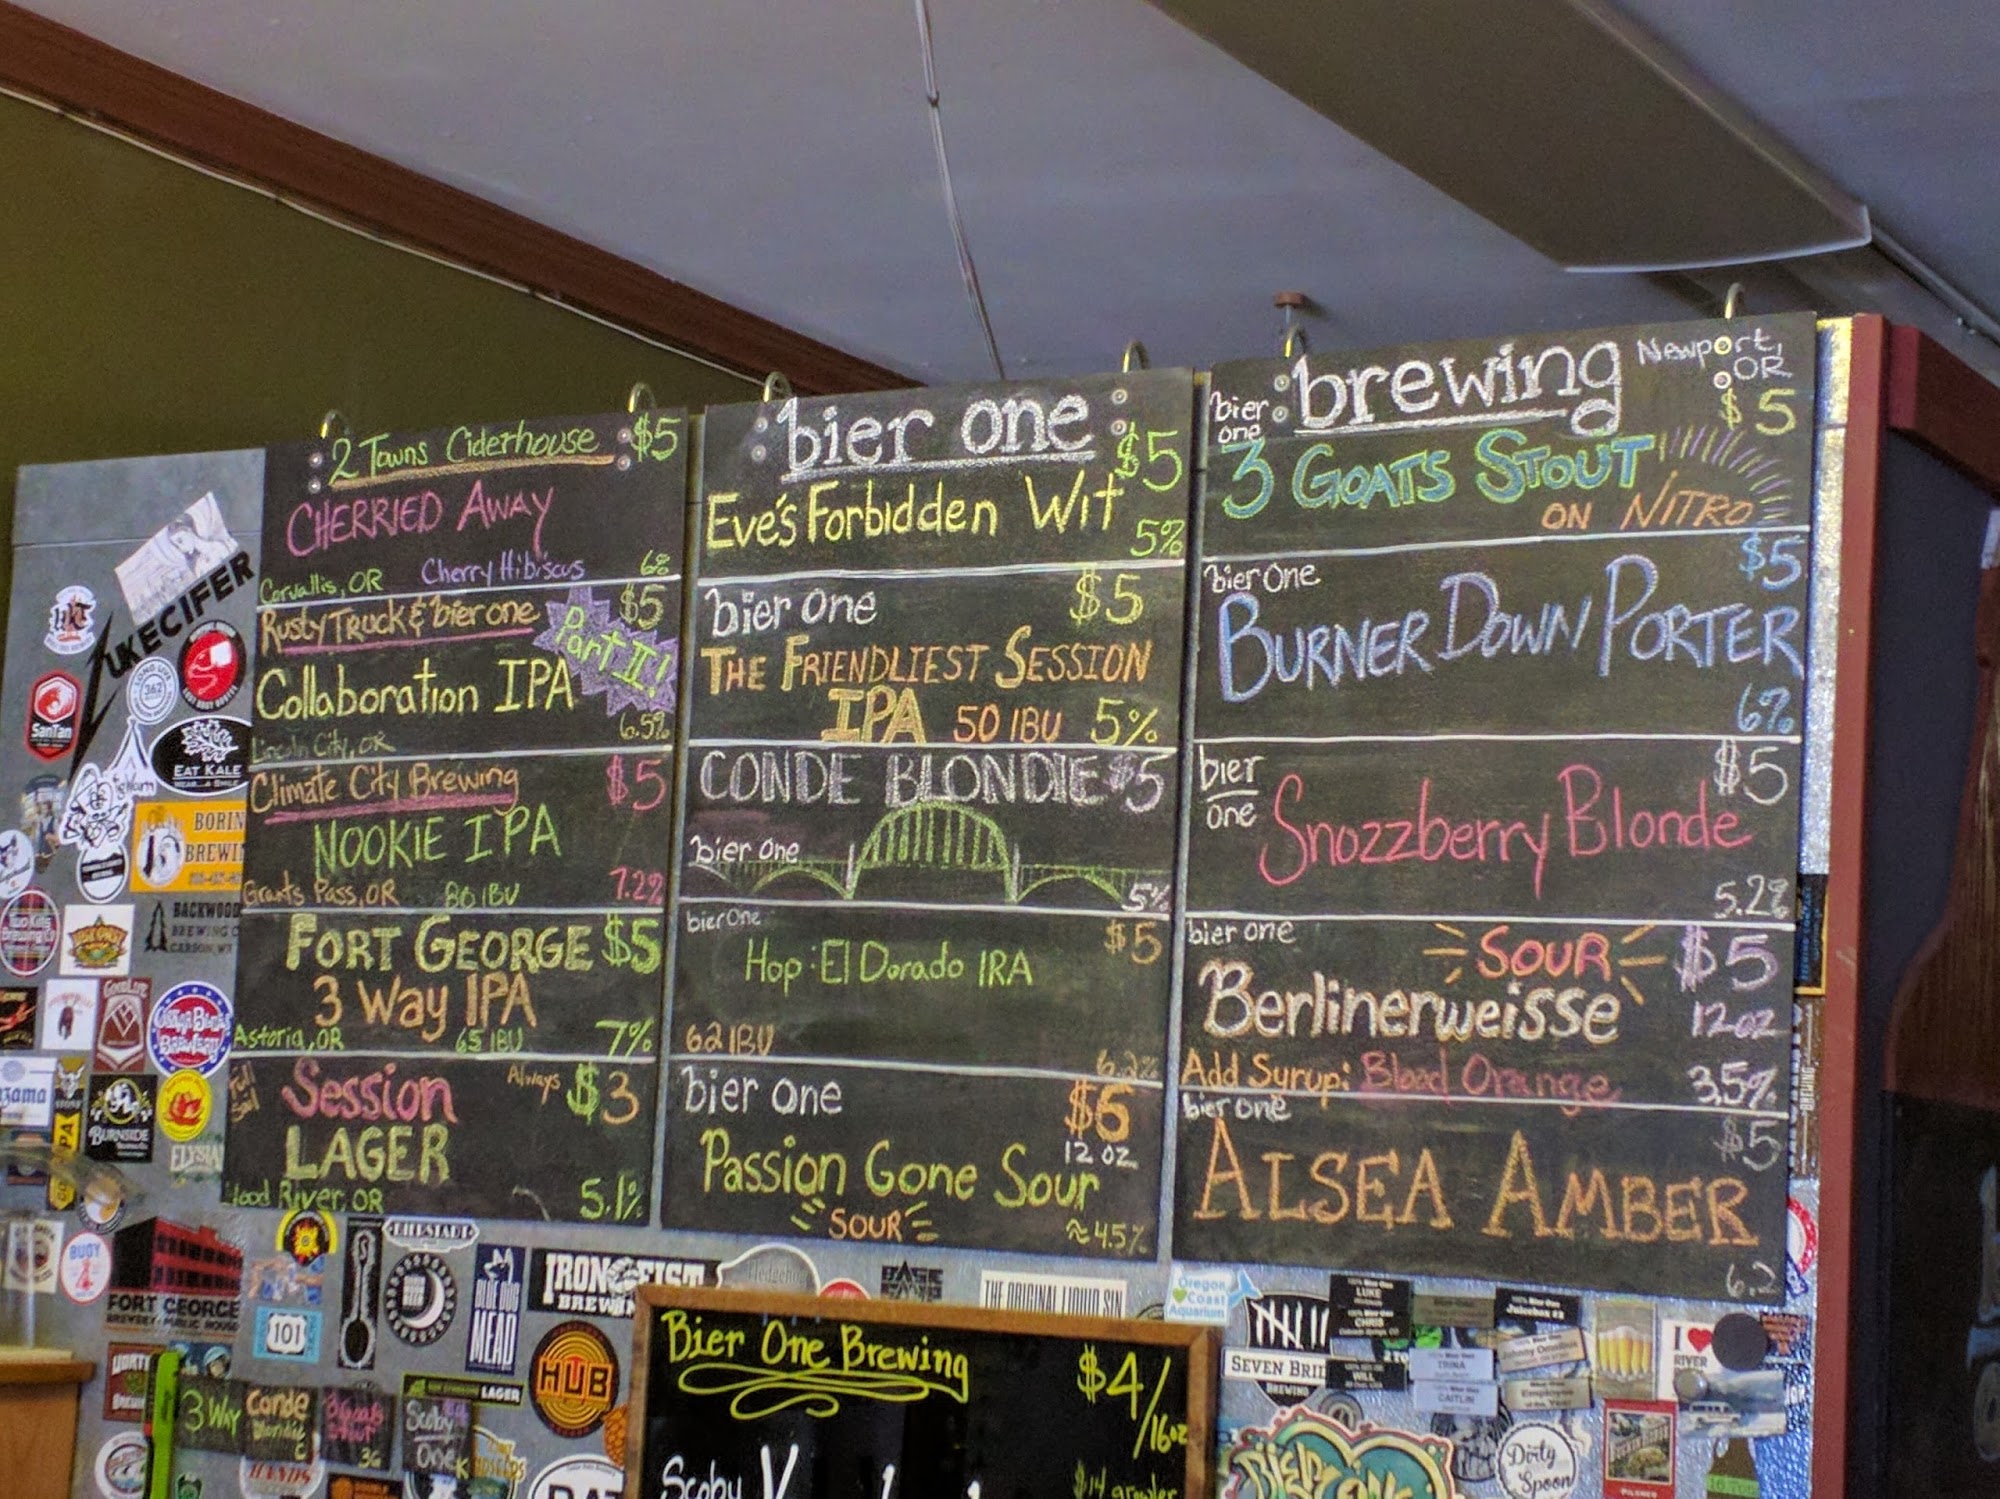 2 Towns Ciderhouse $5
CHERRIED AWAY
Corvallis, OR Cherry Hibiscus 6%
Rusty Truck & bier one $5
Part II!
Collaboration IPA
Lincoln City, OR 6.5%
Climate City Brewing $5
NOOKIE IPA
Grants Pass, OR 80 IBU 7.2%
FORT GEORGE $5
3 Way IPA
Astoria, OR 65 IBU 7%
Full Sail
Session Always $3
LAGER
Hood River, OR 5.1%
bier one
$5
Eve's Forbidden Wit
5%
bier one $5
THE FRIENDLIEST SESSION
IPA 50 IBU 5%
CONDE BLONDIE $5
bier one
5%
bier one $5
Hop: El Dorado IRA
62 IBU 6.2%
bier one $6
12 oz
Passion Gone Sour
SOUR ≈4.5%
brewing Newport, OR
bier one $5
3 GOATS STOUT
ON NITRO
bier One $5
BURNER DOWN PORTER
6%
bier one $5
Snozzberry Blonde
5.2%
bier one SOUR $5
Berlinerweisse 12oz
Add Syrup: Blood Orange 3.5%
bier one $5
ALSEA AMBER
6.2
Bier One Brewing $4/16oz
Scoby
$14 growler
UKECIFER
SanTan
LONG LIVE
362
EAT KALE
BORIN
BREWIN
BACKWOOD
BREWING C
CARSON, W
GOODLIFE
BURNSIDE
ELYSIA
BUOY
FORT GEORGE
BREWERY + PUBLIC HOUSE
101
BLUE DOG
MEAD
IRON FIST
BREWIN
Hedgehog
BASE
CAMP
THE ORIGINAL LIQUID SIN
HUB
LAGER
3 WAY
Conde
Blondie
C
3 Goats
Stout
3G
Scoby
One
K
HANDS
Oregon
Coast
Aquarium
SEVEN BRID
BREWING
LUKE
CHRIS
TRINA
CAITLIN
Johnny Omnibus
I RIVER
Dirty
Spoon
PILSNER
BIER ONE